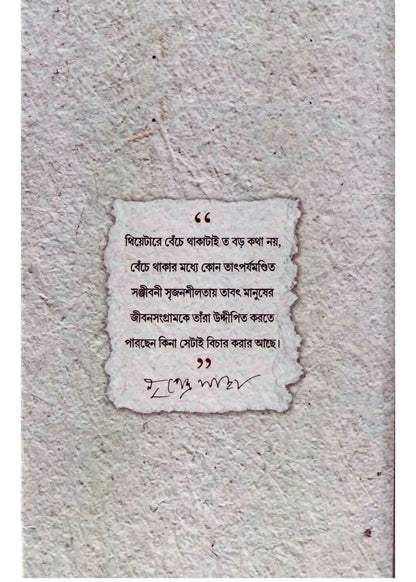 “
থিয়েটারে বেঁচে থাকাটাই ত বড় কথা নয়,
বেঁচে থাকার মধ্যে কোন তাৎপর্যমণ্ডিত
সঞ্জীবনী সৃজনশীলতায় তাবৎ মানুষের
জীবনসংগ্রামকে তাঁরা উদ্দীপিত করতে
পারছেন কিনা সেটাই বিচার করার আছে।
”
নৃপেন্দ্র সাহা